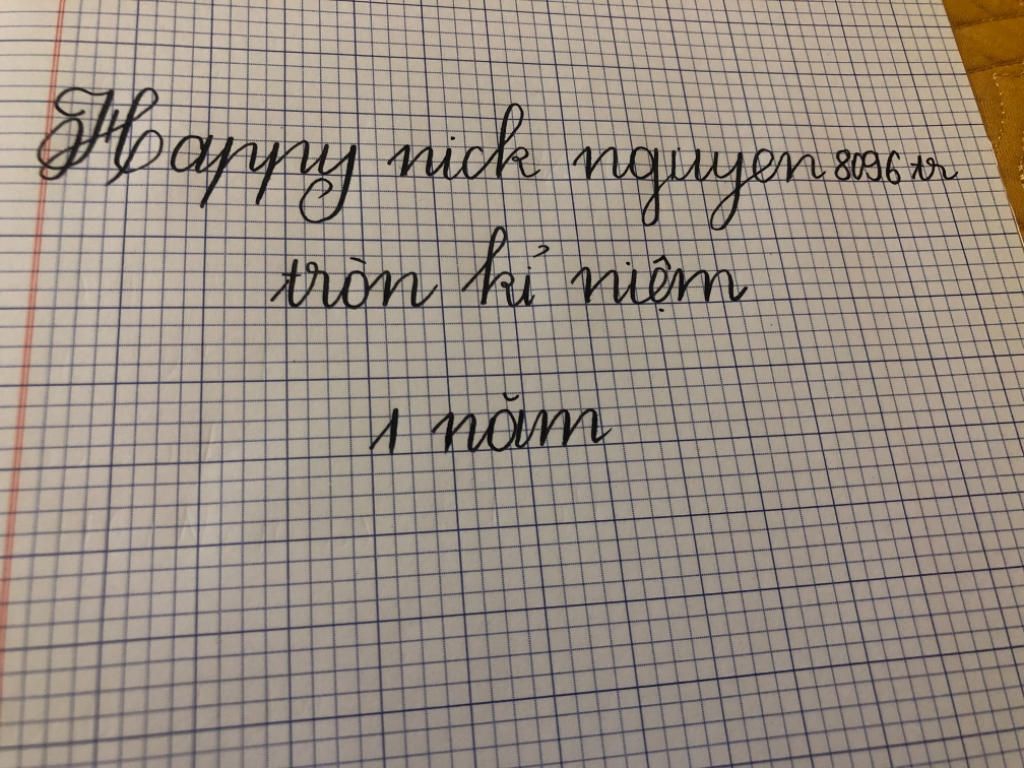 Happy nick nguyen8096tr
tròn kỉ niệm
1 năm